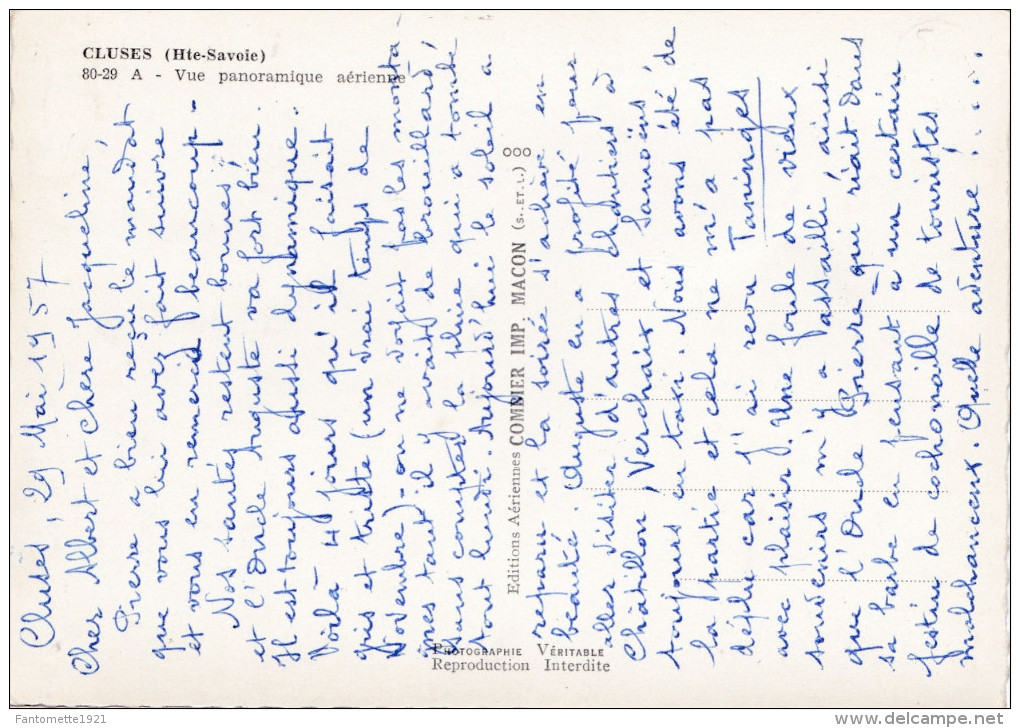 CLUSES (Hte-Savoie)
80-29 A - Vue panoramique aérienne
Cluses, 29 Mai 1957
Cher Albert et Chère Jacqueline
Pierre a bien reçu le mandat
que vous lui avez fait suivre
et vous en remercie beaucoup -
Nos santés restent bonnes
et l'Oncle Auguste va fort bien.
Il est toujours aussi dynamique.
Voilà 4 jours qu'il faisait
gris et triste (un vrai temps de
Novembre) - on ne voyait pas les monta
gnes tant il y avait de brouillard
sans compter la pluie qui a tombé
tout lundi. Aujourd'hui le soleil a
reparu et la soirée s'achève en
beauté. Auguste en a profité pour
aller visiter d'autres chantiers à
Châtillon, Verchaix et Samoëns
toujours en taxi. Nous avons été de
la partie et cela ne m'a pas
déplu car j'ai revu Taninges
avec plaisir. Une foule de vieux
souvenirs m'y a assailli ainsi
que l'Oncle Pierre qui riait dans
sa barbe en pensant à un certain
festin de cochonaille de touristes
malchanceux. Quelle aventure !.....
OOO
Editions Aériennes COMBIER IMP. MACON (S. ET L.)
PHOTOGRAPHIE VÉRITABLE
Reproduction Interdite
Fantomette1921
delcampe.net